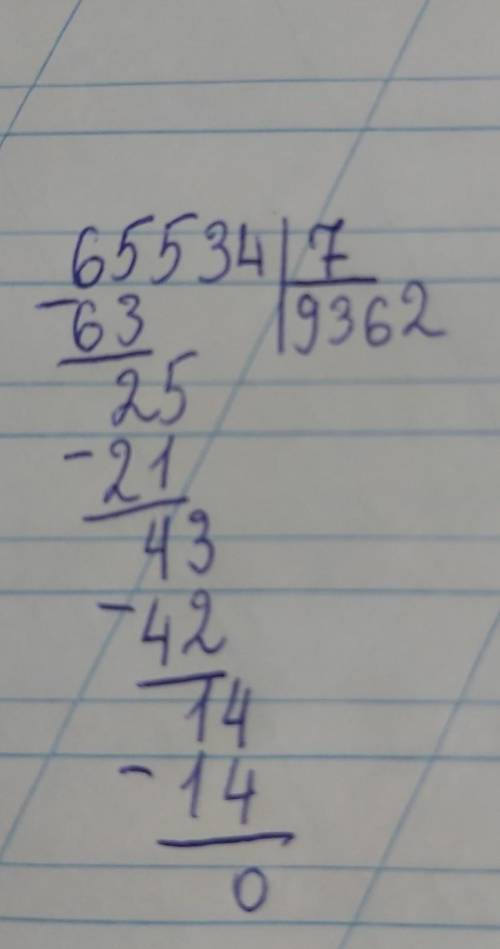 65534 7
- 63 9362
25
- 21
43
- 42
14
- 14
0